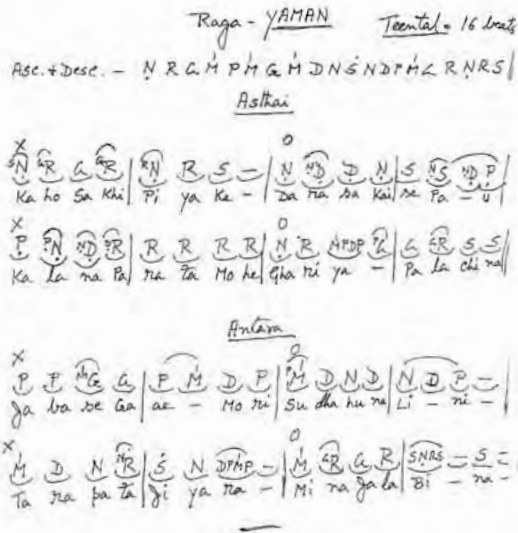 Raga - YAMAN Teental = 16 beats
Asc. + Desc. - Ṇ R G Ḿ P Ḿ G Ḿ D N Ṡ N D P Ḿ G R Ṇ R S |
Asthai
X O
SN GR G GR | RN R S - | N ND D N | S NS ND P
Ka ho Sa khi | Pi ya Ke - | Da ra sa kai | se Pa - ü |
X O
P PN ND SR | R R R R | N R NPDP PG | G GR S S
Ka la na Pa | ra ta Mo he | Gha ri ya - | Pa la chi na |
Antara
X O
P P ḾG G | P Ḿ D P | PḾ D N D | N D P - |
Ja ba se Ga | ae - Mo ri | Su dha hu na | Li - ni - |
X O
Ḿ D N NR | Ṡ N DPḾP - | Ḿ GR G R | SNRS - S -
Ta ra pa ta | Ji ya ra - | Mi na Ja la | Bi - na - |